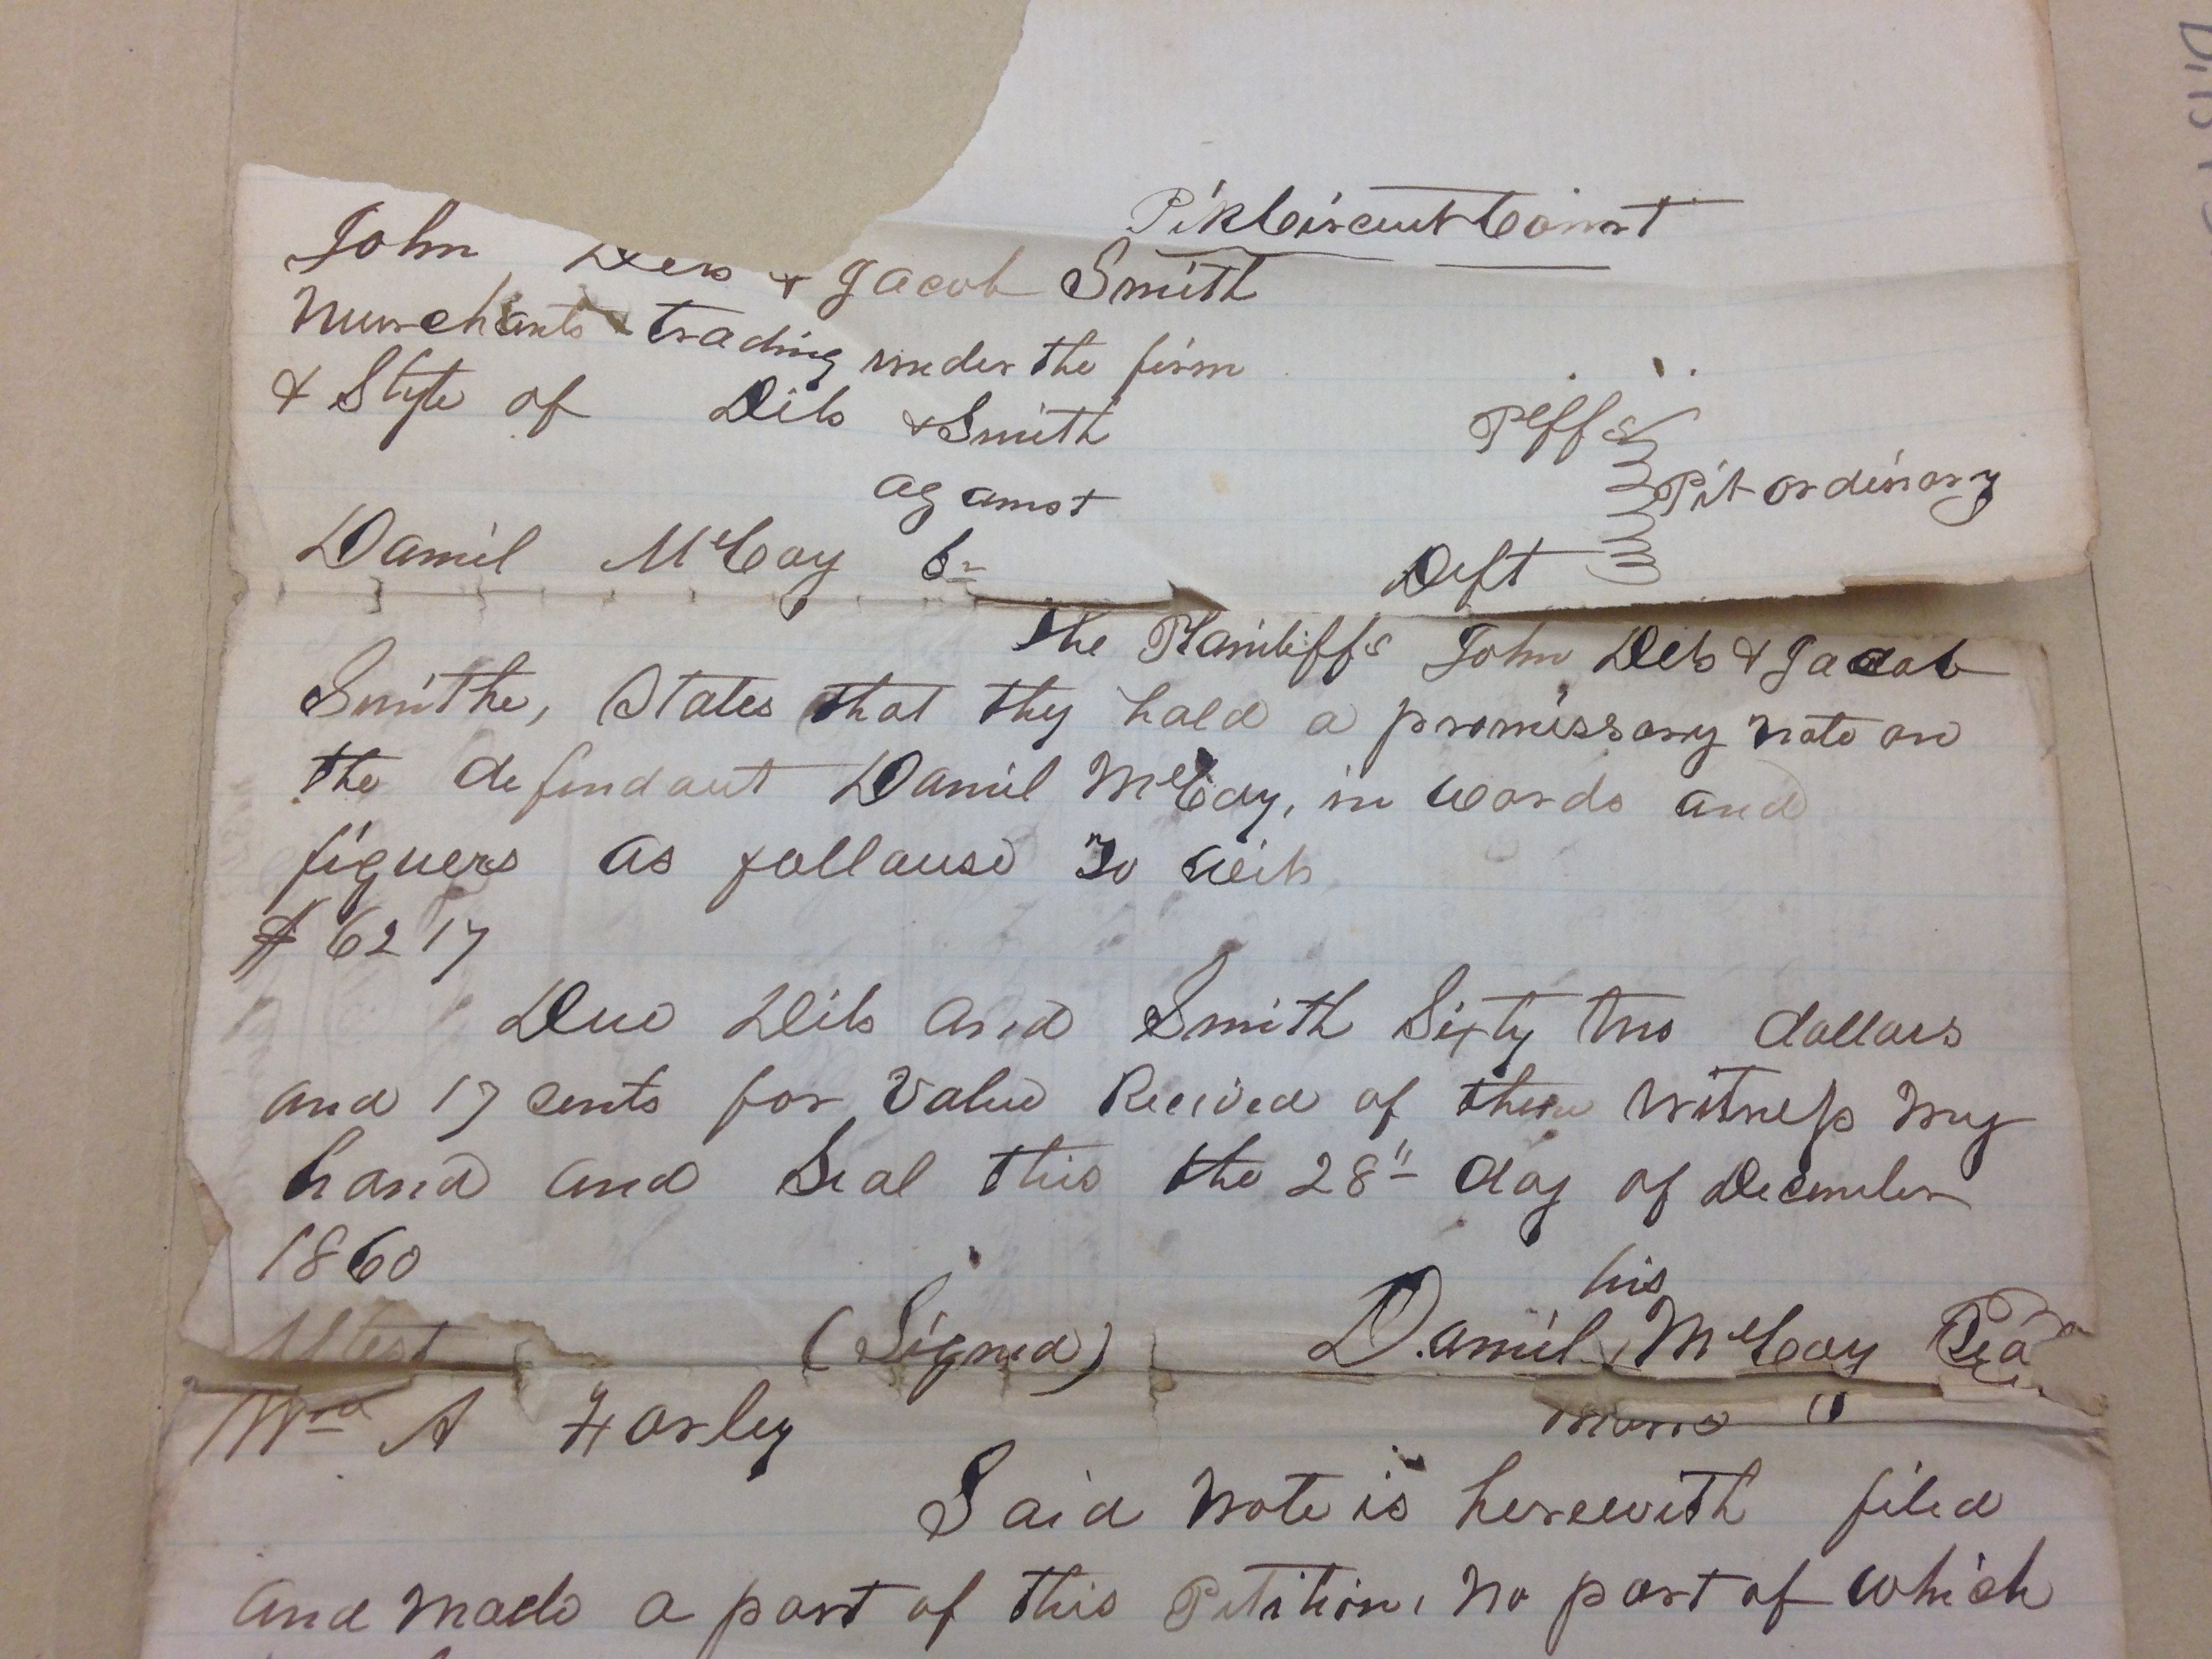 Pik Circuit Court
John Dils & Jacob Smith
Murchants trading under the firm
& Style of Dils & Smith
Plffs
against
Pit ordinary
Daniel McCoy
Deft
the Plaintiffs John Dils & Jacob
Smithe, States that they hold a promissory note on
the defendant Daniel McCoy, in words and
figuers as follause To wit
$62 17
Due Dils and Smith Sixty two dollars
and 17 cents for Value Recived of them Witness my
hand and Seal this the 28" day of December
1860
his
Attest (Signed) Daniel McCoy
Wm A Harley
Said note is herewith filed
and made a part of this Petition, no part of which